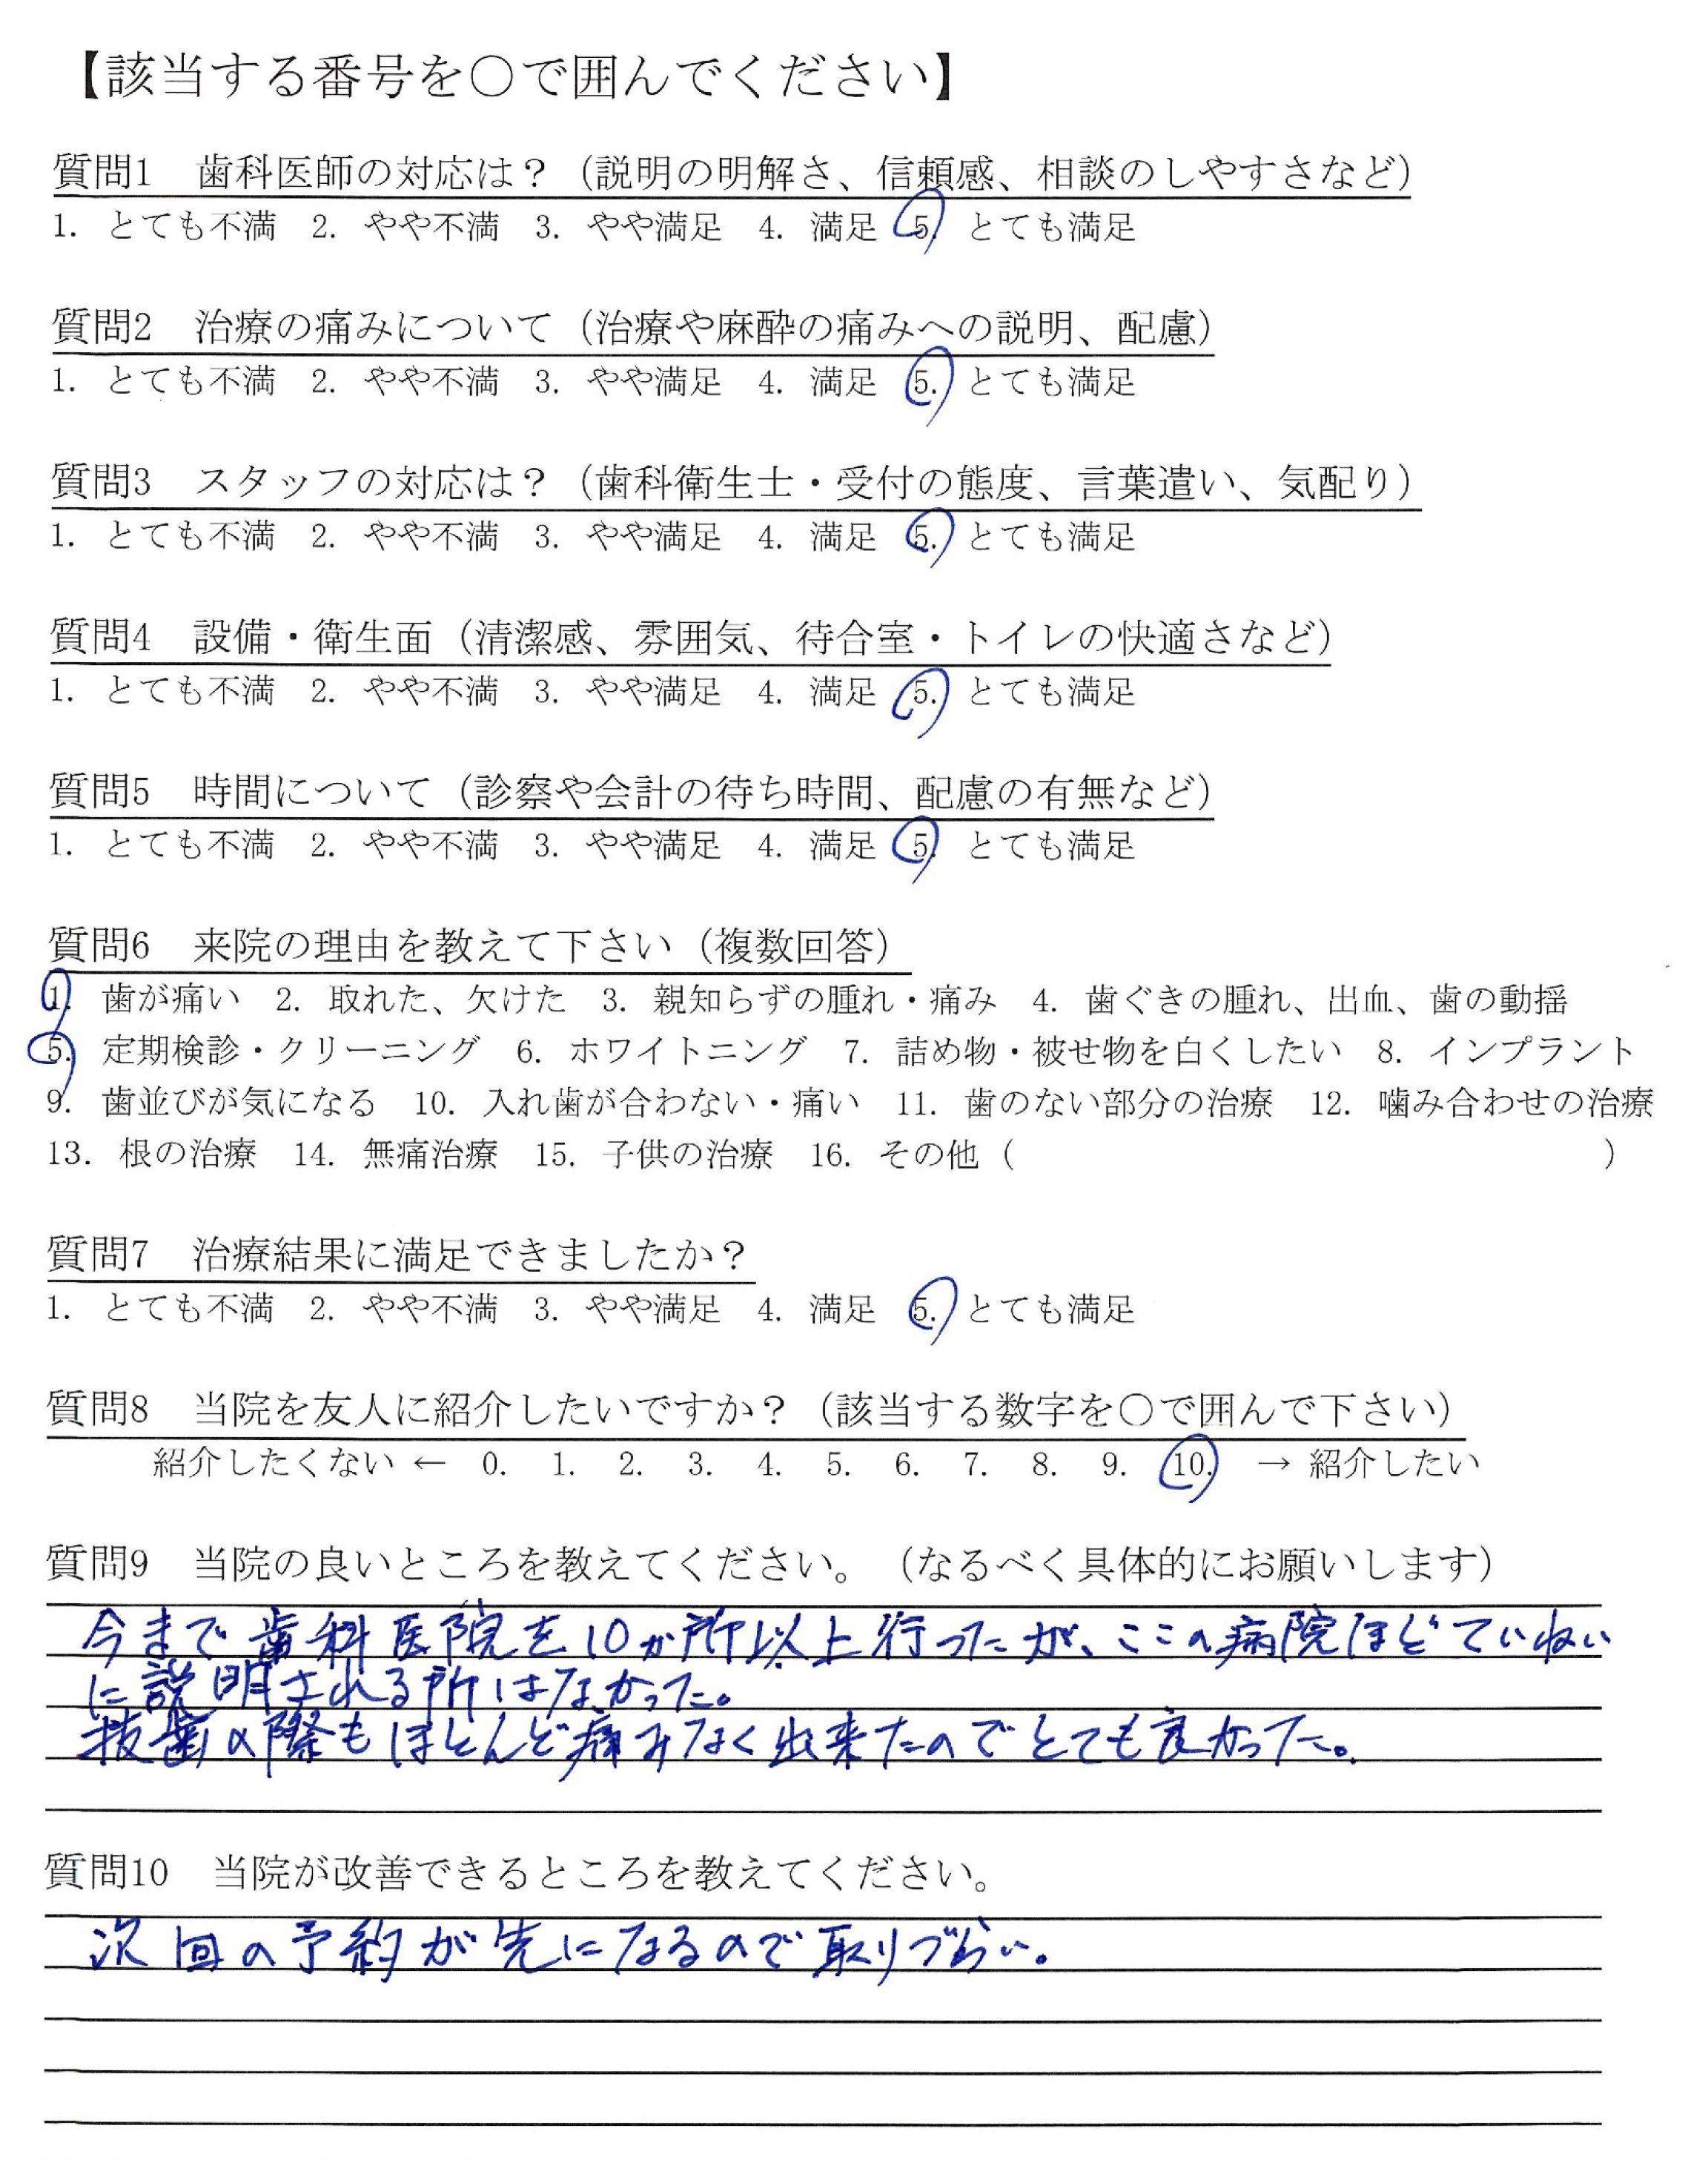 【該当する番号を○で囲んでください】
質問1　歯科医師の対応は？（説明の明解さ、信頼感、相談のしやすさなど）
1. とても不満　2. やや不満　3. やや満足　4. 満足　5. とても満足
質問2　治療の痛みについて（治療や麻酔の痛みへの説明、配慮）
1. とても不満　2. やや不満　3. やや満足　4. 満足　5. とても満足
質問3　スタッフの対応は？（歯科衛生士・受付の態度、言葉遣い、気配り）
1. とても不満　2. やや不満　3. やや満足　4. 満足　5. とても満足
質問4　設備・衛生面（清潔感、雰囲気、待合室・トイレの快適さなど）
1. とても不満　2. やや不満　3. やや満足　4. 満足　5. とても満足
質問5　時間について（診察や会計の待ち時間、配慮の有無など）
1. とても不満　2. やや不満　3. やや満足　4. 満足　5. とても満足
質問6　来院の理由を教えて下さい（複数回答）
1. 歯が痛い　2. 取れた、欠けた　3. 親知らずの腫れ・痛み　4. 歯ぐきの腫れ、出血、歯の動揺
5. 定期検診・クリーニング　6. ホワイトニング　7. 詰め物・被せ物を白くしたい　8. インプラント
9. 歯並びが気になる　10. 入れ歯が合わない・痛い　11. 歯のない部分の治療　12. 噛み合わせの治療
13. 根の治療　14. 無痛治療　15. 子供の治療　16. その他（　　　　　　　　　　　　　　　　）
質問7　治療結果に満足できましたか？
1. とても不満　2. やや不満　3. やや満足　4. 満足　5. とても満足
質問8　当院を友人に紹介したいですか？（該当する数字を○で囲んで下さい）
紹介したくない ← 0. 1. 2. 3. 4. 5. 6. 7. 8. 9. 10. → 紹介したい
質問9　当院の良いところを教えてください。（なるべく具体的にお願いします）
今まで歯科医院を10か所以上行ったが、ここの病院ほどていねい
に説明される所はなかった。
抜歯の際もほとんど痛みなく出来たのでとても良かった。
質問10　当院が改善できるところを教えてください。
次回の予約が先になるので取りづらい。